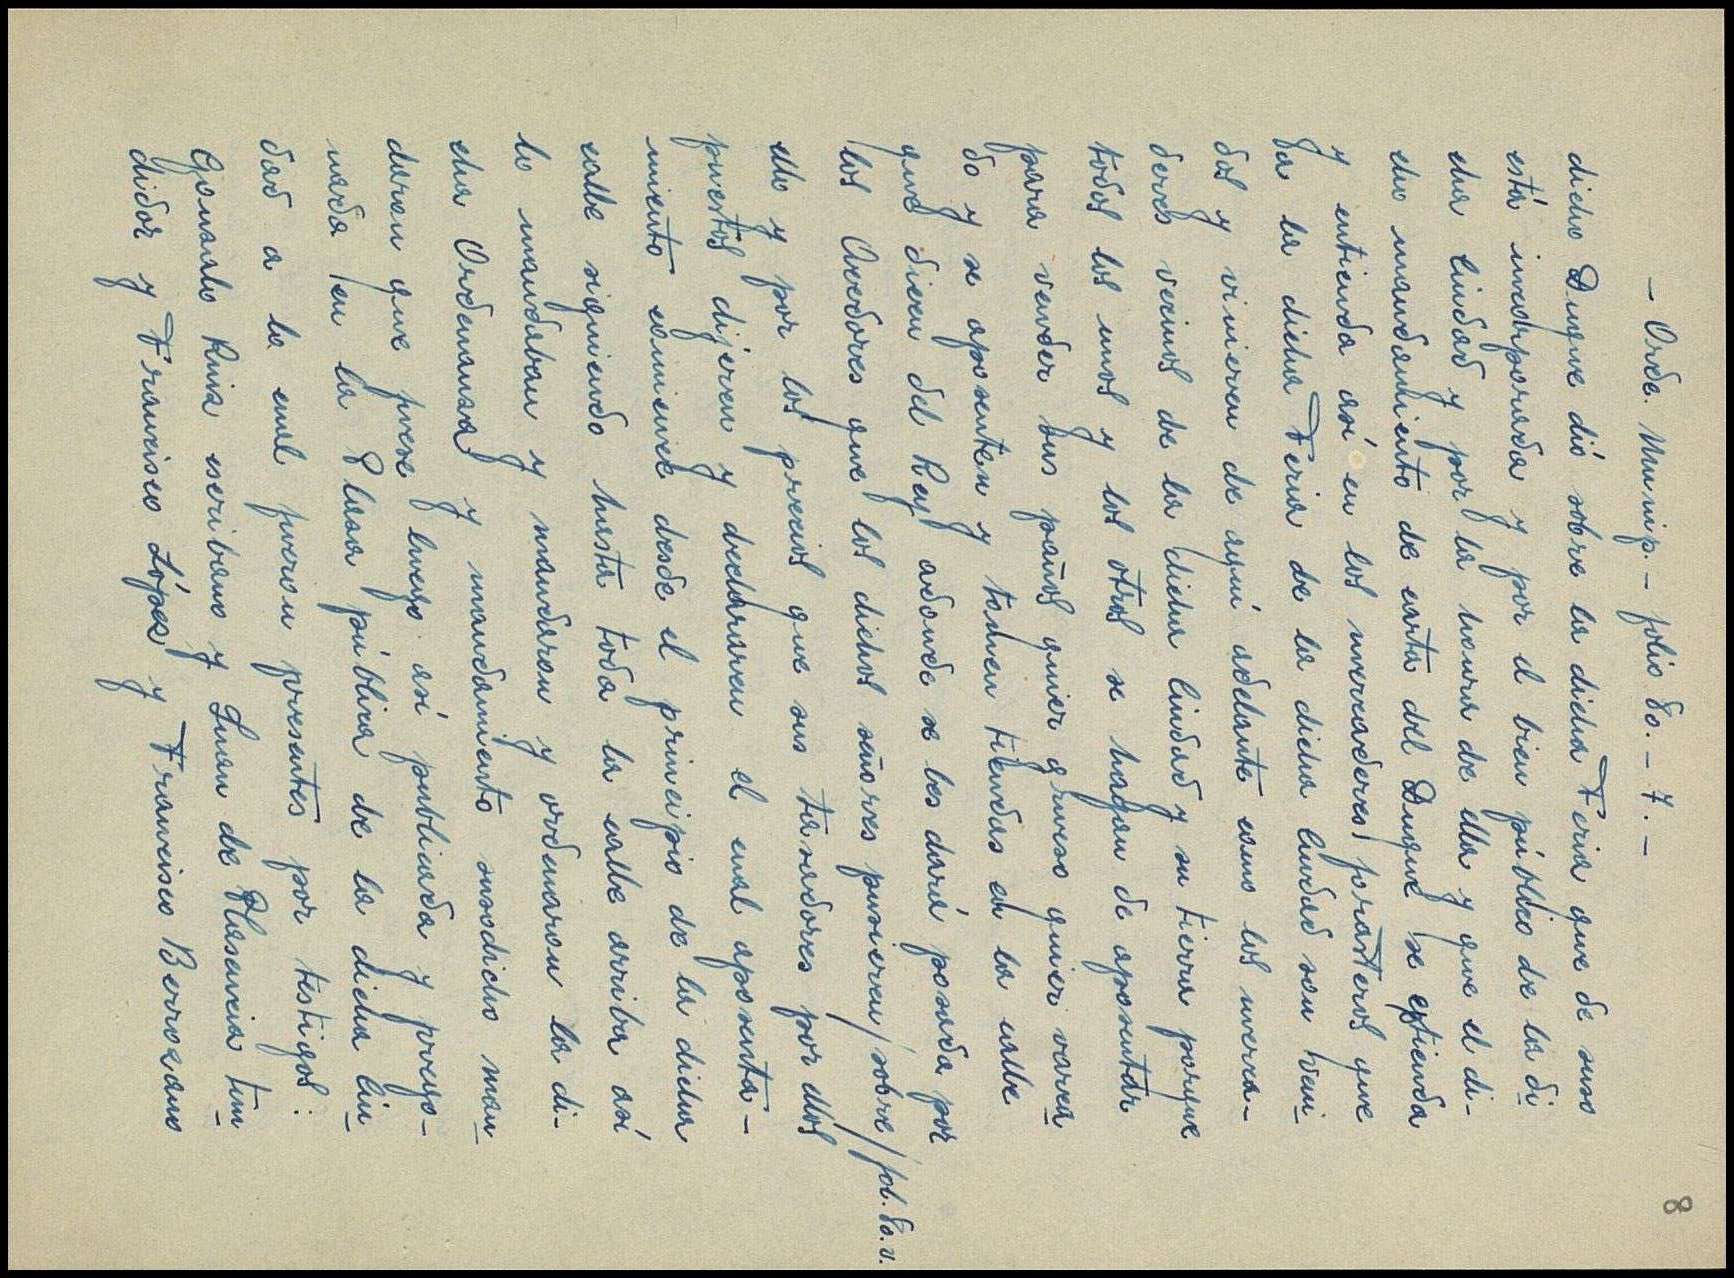 8
- Orde. Munip. - folio 80. - 7. -
dicho Duque dió sobre la dicha Feria que de suso
está incorporada y por el bien público de la di
cha ciudad y por la honra de ella y que el di-
cho mandamiento de carta del Duque se estienda
y entienda así en los mercaderes forasteros que
ha la dicha Feria de la dicha ciudad son veni
dos y vinieren de aquí adelante como los merca-
deres vecinos de la dicha ciudad y su tierra porque
todos los unos y los otros se hagan de aposentar
para vender sus paños quier grueso quier varea
do y se aposenten y tomen tiendas en la calle
que dicen del Rey adonde se les dará posada por
los Veedores que los dichos señores pusieren/sobre/fol. 80.v.
ello y por los precios que sus tasadores por ellos
puestos dijeren y declararen el cual aposenta-
miento comience desde el principio de la dicha
calle siguiendo hasta toda la calle arriba así
lo mandaban y mandaron y ordenaron la di-
cha Ordenanza y mandamiento susodicho man
daron que fuese luego así publicada y prego-
nada en la Plaza pública de la dicha ciu
dad a lo cual fueron presentes por testigos:
Gonzalo Ruiz escribano y Juan de Plasencia tun
didor y Francisco López y Francisco Berrozano